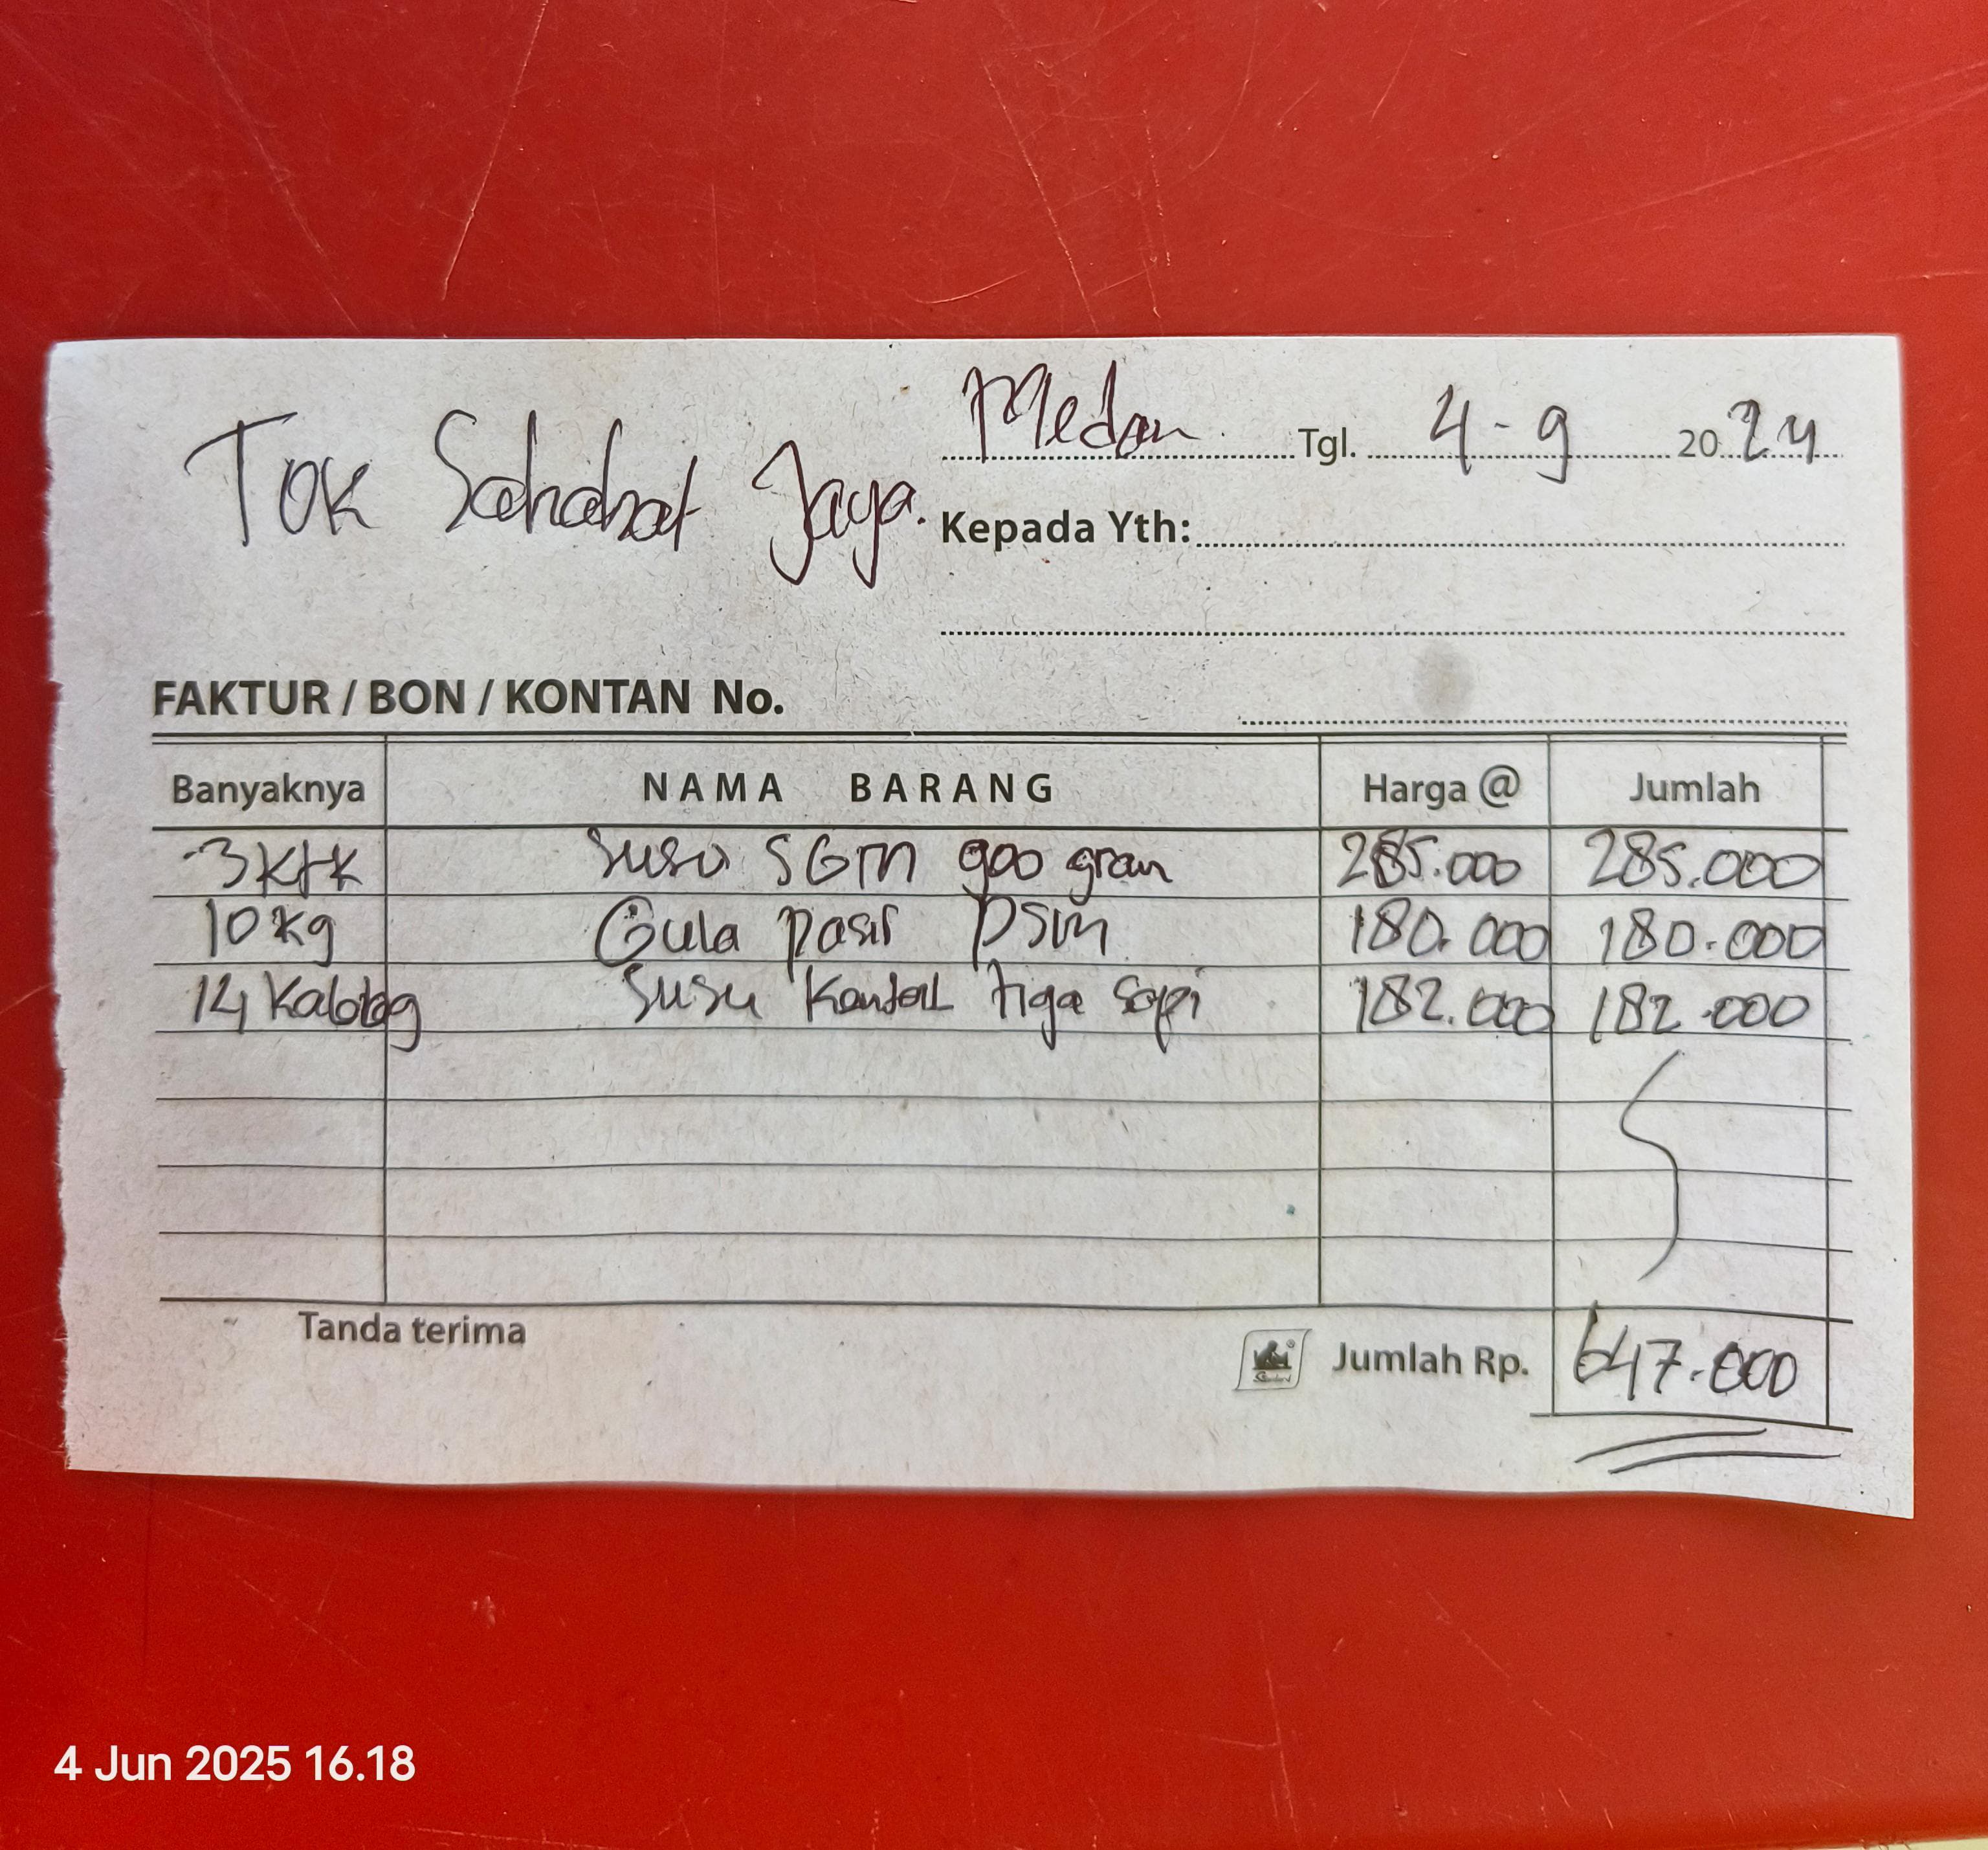 Medan Tgl. 4-9 2024
Tok Sahabat Jaya.
Kepada Yth:
FAKTUR / BON / KONTAN No.
Banyaknya NAMA BARANG Harga @ Jumlah
3 ktk Susu SGM 900 gram 285.000 285.000
10 kg Gula pasir PSM 180.000 180.000
14 Kaleng Susu Kental tiga sapi 182.000 182.000
Tanda terima
Jumlah Rp. 647.000
4 Jun 2025 16.18